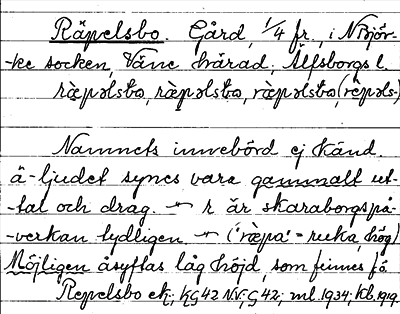 Räpelsbo. Gård, 1/4 fr., i N Björ-
-ke socken, Väne härad, Älfsborgs l.
ràpəlsbo, ràpəlsbo, ræpəlsbo, (rêpəls-)
Namnets innebörd ej känd.
ä-ljudet synes vara gammalt ut-
-tal och drag. r är skaraborgspå-
-verkan tydligen. ('ræpa' = ruka, hög)
Möjligen åsyftas låg höjd, som finnes få
Repelsbo ek; KG 42 NV. G 42; ml. 1934; kb. 1919